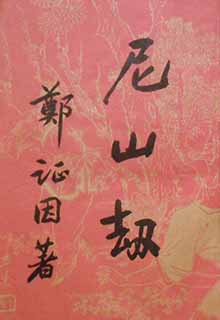 尼山劫
鄭证因著